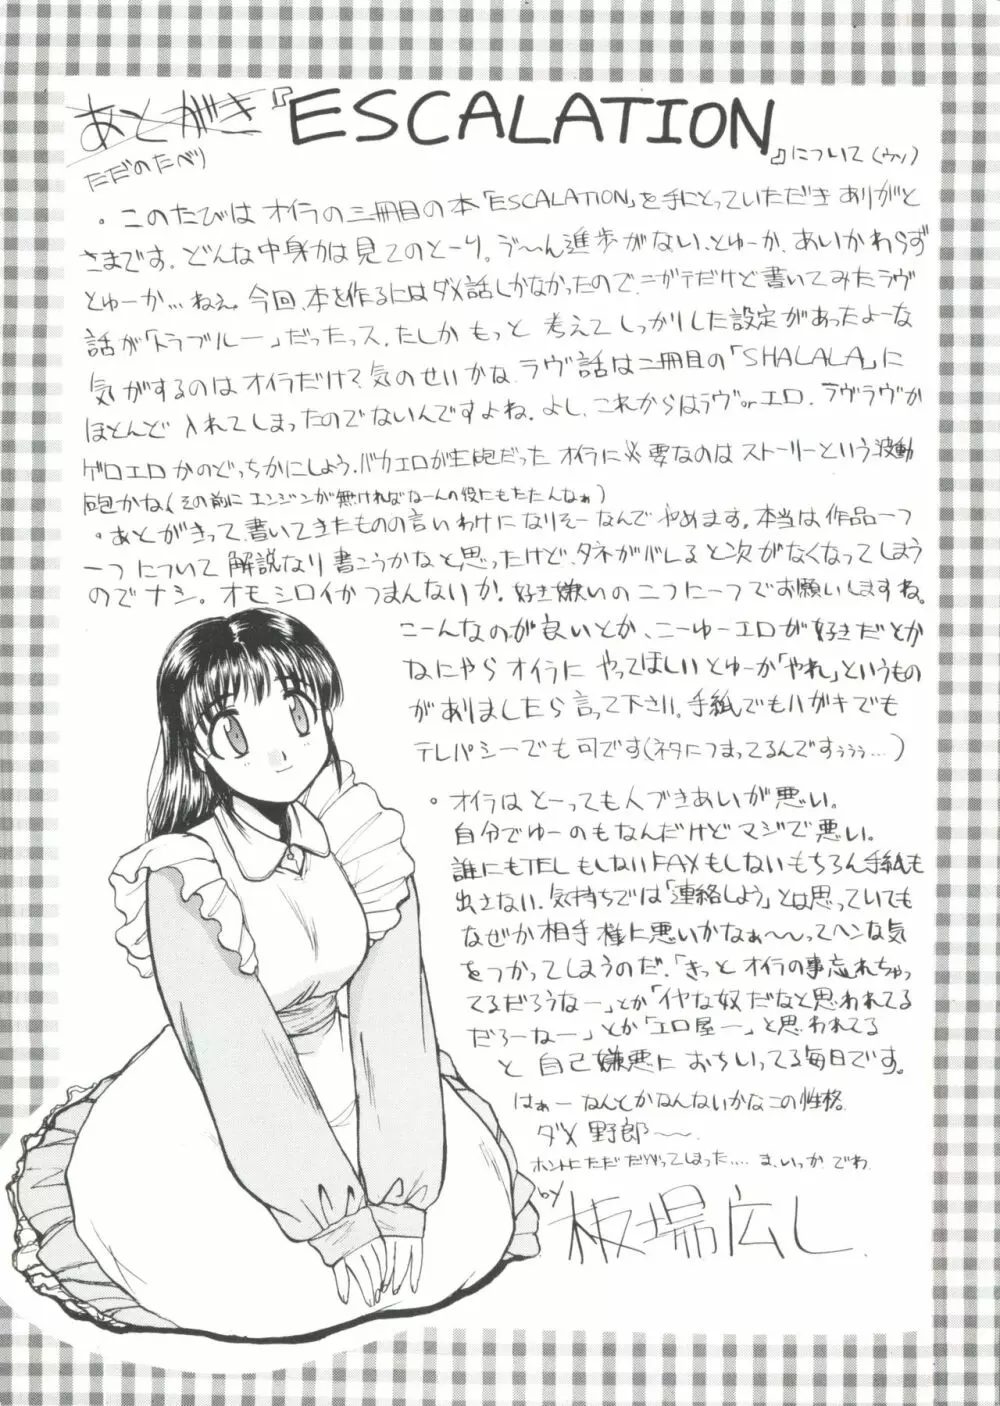 あとがき『ESCALATION』について(ウソ)
ただのたべり
・このたびは オイラの三冊目の本「ESCALATION」を手にとっていただき ありがと
さまです。どんな中身かは見てのとーり。う〜ん進歩がない、とゅーか、あいかわらず
とゅーか…ねぇ。今回、本を作るにはダメ話しかなかったので、ニガテだけど書いてみたラヴ
話が「トラブルー」だったっス。たしか もっと 考えて しっかりした設定があったよーな
気がするのはオイラだけ?気のせいかな。ラヴ話は二冊目の「SHALALA」に
ほとんど 入れてしまったのでないんですよね。よし、これからはラヴorエロ。ラヴラヴか
ゲロエロ かのどっちかにしよう。バカエロが主砲だった オイラに必要なのは ストーリーという波動
砲かな(その前に エンジンが無ければなーんの役にもたたんなぁ)
・あとがきって、書いてきたものの言いわけになりそーなんで やめます。本当は作品一つ
一つについて 解説なり書こうかなと思ったけど、タネがバレると次がなくなってしまう
のでナシ。オモシロイかつまんないか!好き嫌いの二つに一つでお願いしますね。
こーんなのが良いとか、こーゆーエロが好きだとか
なにやらオイラに やってほしいとゅーか「やれ」というもの
がありましたら言って下さい。手紙でもハガキでも
テレパシーでも可です(ネタにつまってるんですぅぅぅ…)
・オイラはとーっても人づきあいが悪い。
自分でゆーのもなんだけどマジで悪い。
誰にもTELもしないFAXもしないもちろん手紙も
出さない。気持ちでは「連絡しよう」とは思っていても
なぜか相手様に悪いかなぁ〜〜ってヘンな気
をつかってしまうのだ。「きっとオイラの事忘れちゃっ
てるだろうなー」とか「イヤな奴だなと思われてる
だろーなー」とか「エロ屋ー」と思われてる
と 自己嫌悪におちいってる毎日です。
はぁー なんとかなんないかなこの性格。
ダメ野郎〜〜
ホントにただ だべってしまった…. ま、いっか。でわ
by 板場広し